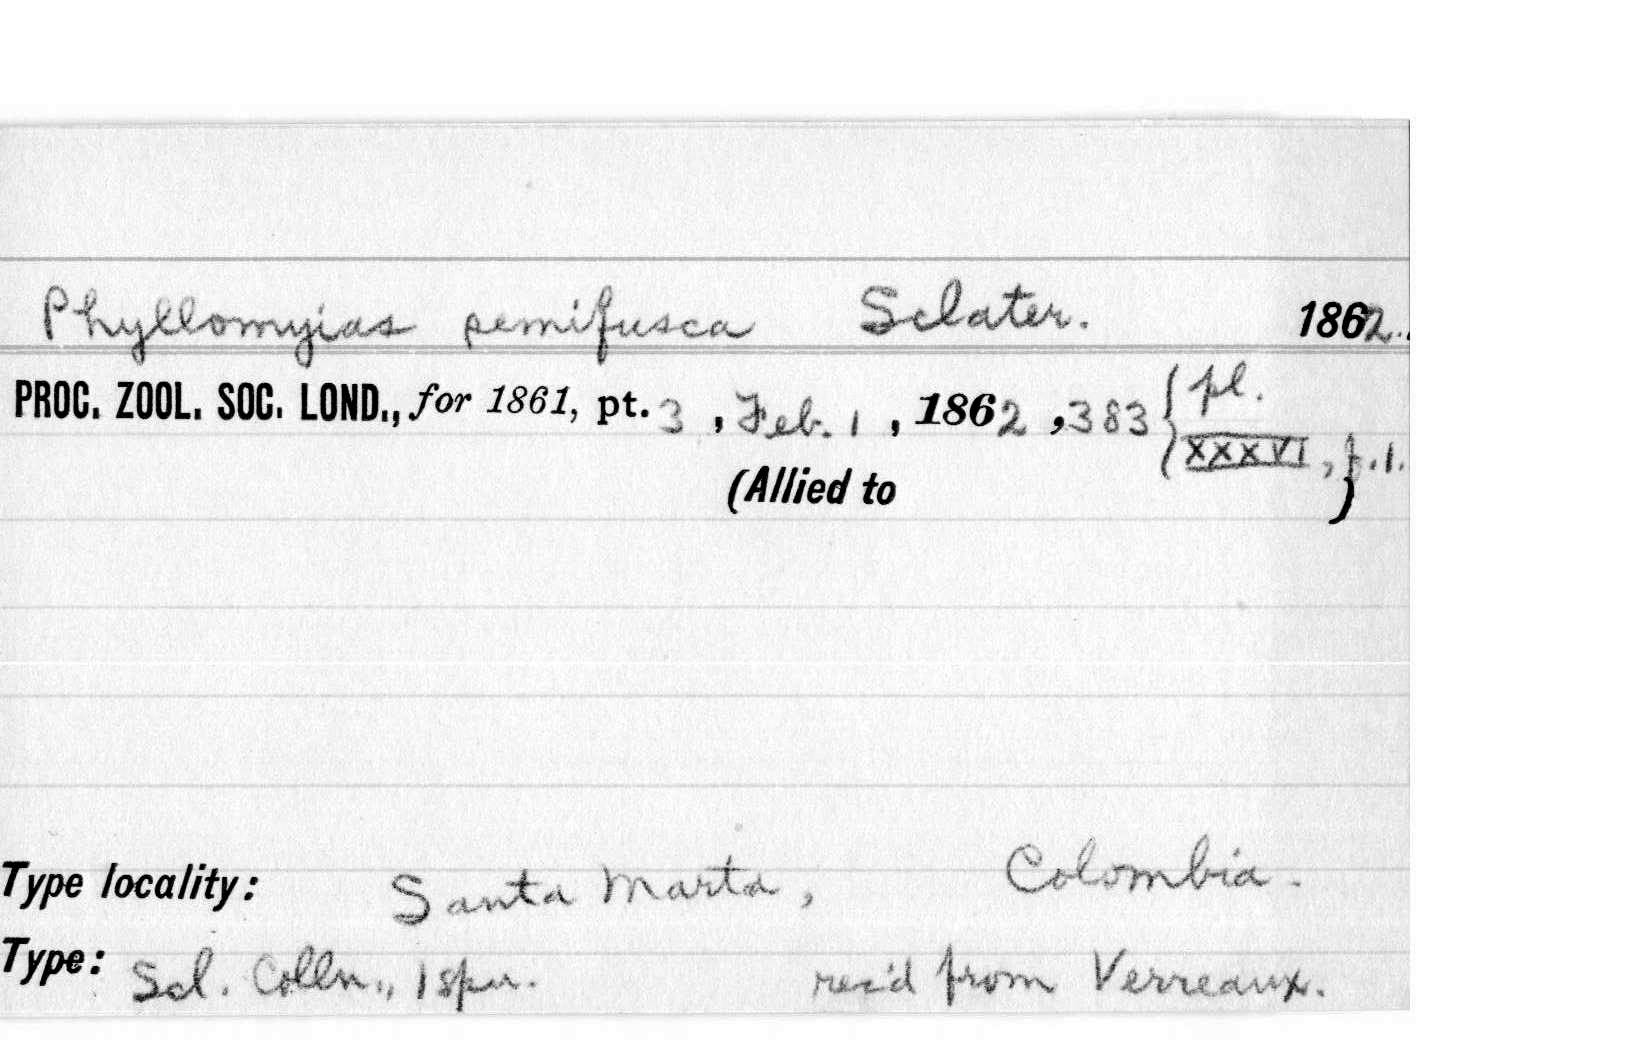 Phyllomyias semifusca Sclater. 1862.
PROC. ZOOL. SOC. LOND., for 1861, pt. 3, Feb. 1, 1862, 383 { pl.
XXXVI, f.1.
(Allied to )
Type locality: Santa Marta, Colombia.
Type: Scl. Colln., 1 spn. rec'd from Verreaux.